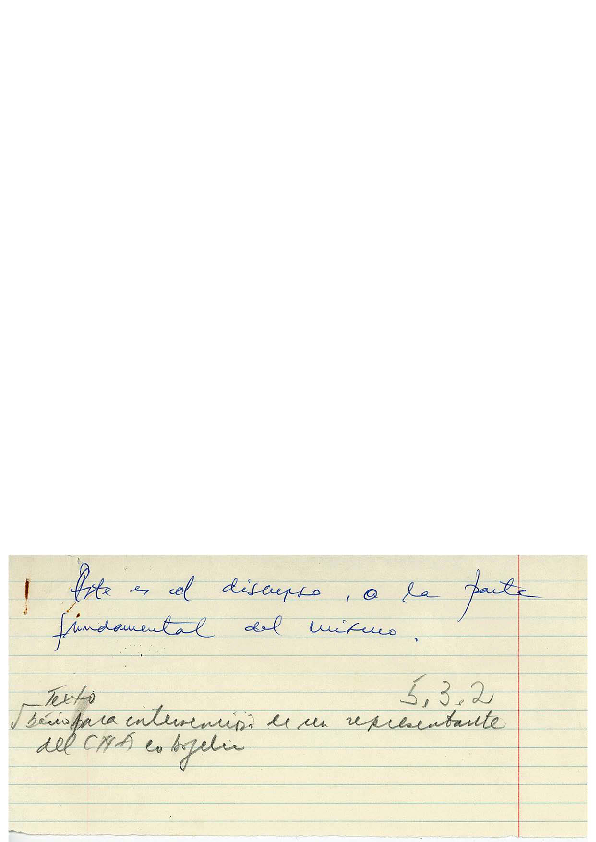 Este es el discurso, o la parte
fundamental del mismo.
Texto 5, 3, 2
para intervención de un representante
del